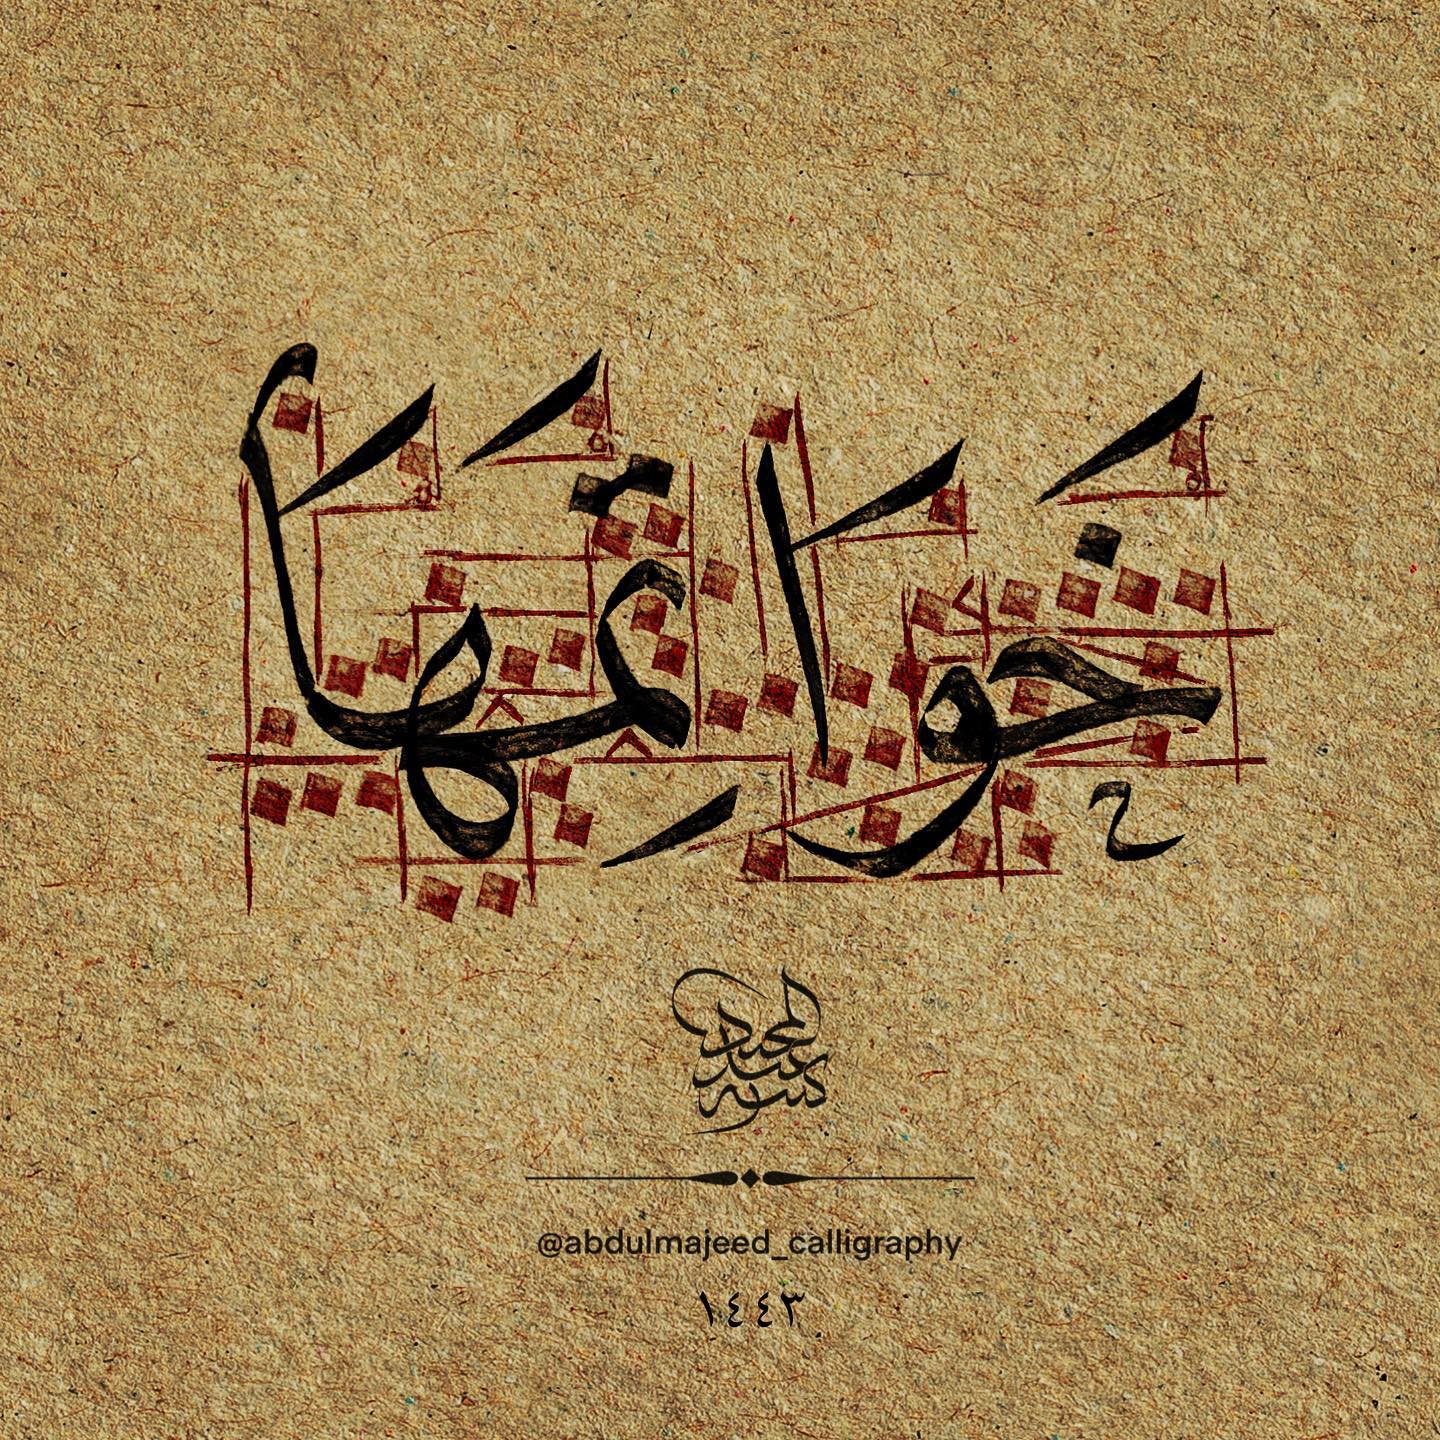 خَوَاتِمَهَا
كتبه عبد المجيد
@abdulmajeed_calligraphy
١٤٤٣